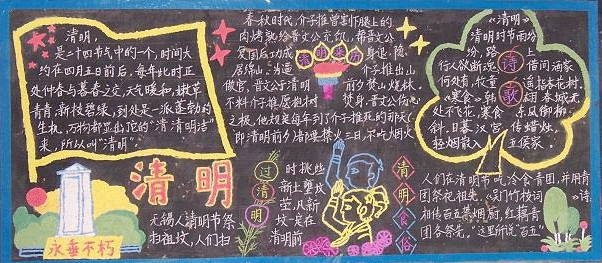 清明,
是二十四节气中的一个,时间大
约在四月五日前后,每年此时正
处仲春与暮春之交,天气暖和,嫩草
青青,新枝碧绿,到处是一派蓬勃的
生机,万物都显出它的“清清明洁”
来,所以叫“清明”.
清明
永垂不朽
春秋时代,介子推曾割下腿上的
肉烤熟给晋文公充饥,帮晋文公
复国后功成 身退,隐
居绵山,为逼 介子推出山
做官,晋文公清明 前夕焚山烧林,
不料介子推愿抱树 焚身,晋文公伤心
之极,他规定每年到了介子推死的前天(
即清明前夕)都要禁火三日,不吃烟火
清明来历
过清明
无锡人清明节祭
扫祖坟,人们扫
时挑些
新土壅坟
茔,凡新
坟一定在
清明前
《清明》
清明时节雨纷
纷,路 上
行人欲断魂 借问酒家
何处有,牧童 遥指杏花村.
《寒食》韩 翃 春城无
处不飞花,寒食 东风御柳
斜.日暮汉宫 传蜡烛,
轻烟散入 五侯家.
诗歌
清明食俗
人们在清明节吃冷食青团,并用青
团祭祀祖先.《吴门竹枝词》诗
相传百五禁烟厨,红藕青
团各祭先.“这里所说“百五”